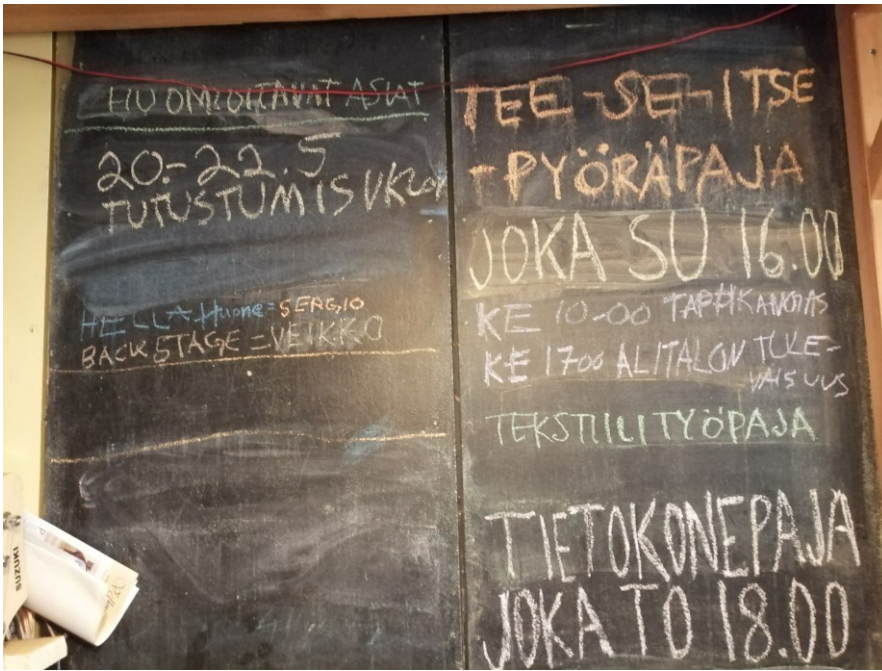 HUOMIOITAVAT ASIAT
20.-22.5
TUTUSTUMIS
HELLA-Huone=SERGIO
BACK STAGE=VEIKKO
TEE-SE-ITSE
-PYÖRÄPAJA
JOKA SU 16.00
KE 10-00
KE 1700 ALITALON TULE-
VAISUUS
TEKSTIILITYÖPAJA
TIETOKONEPAJA
JOKA TO 18.00
SUZUKI